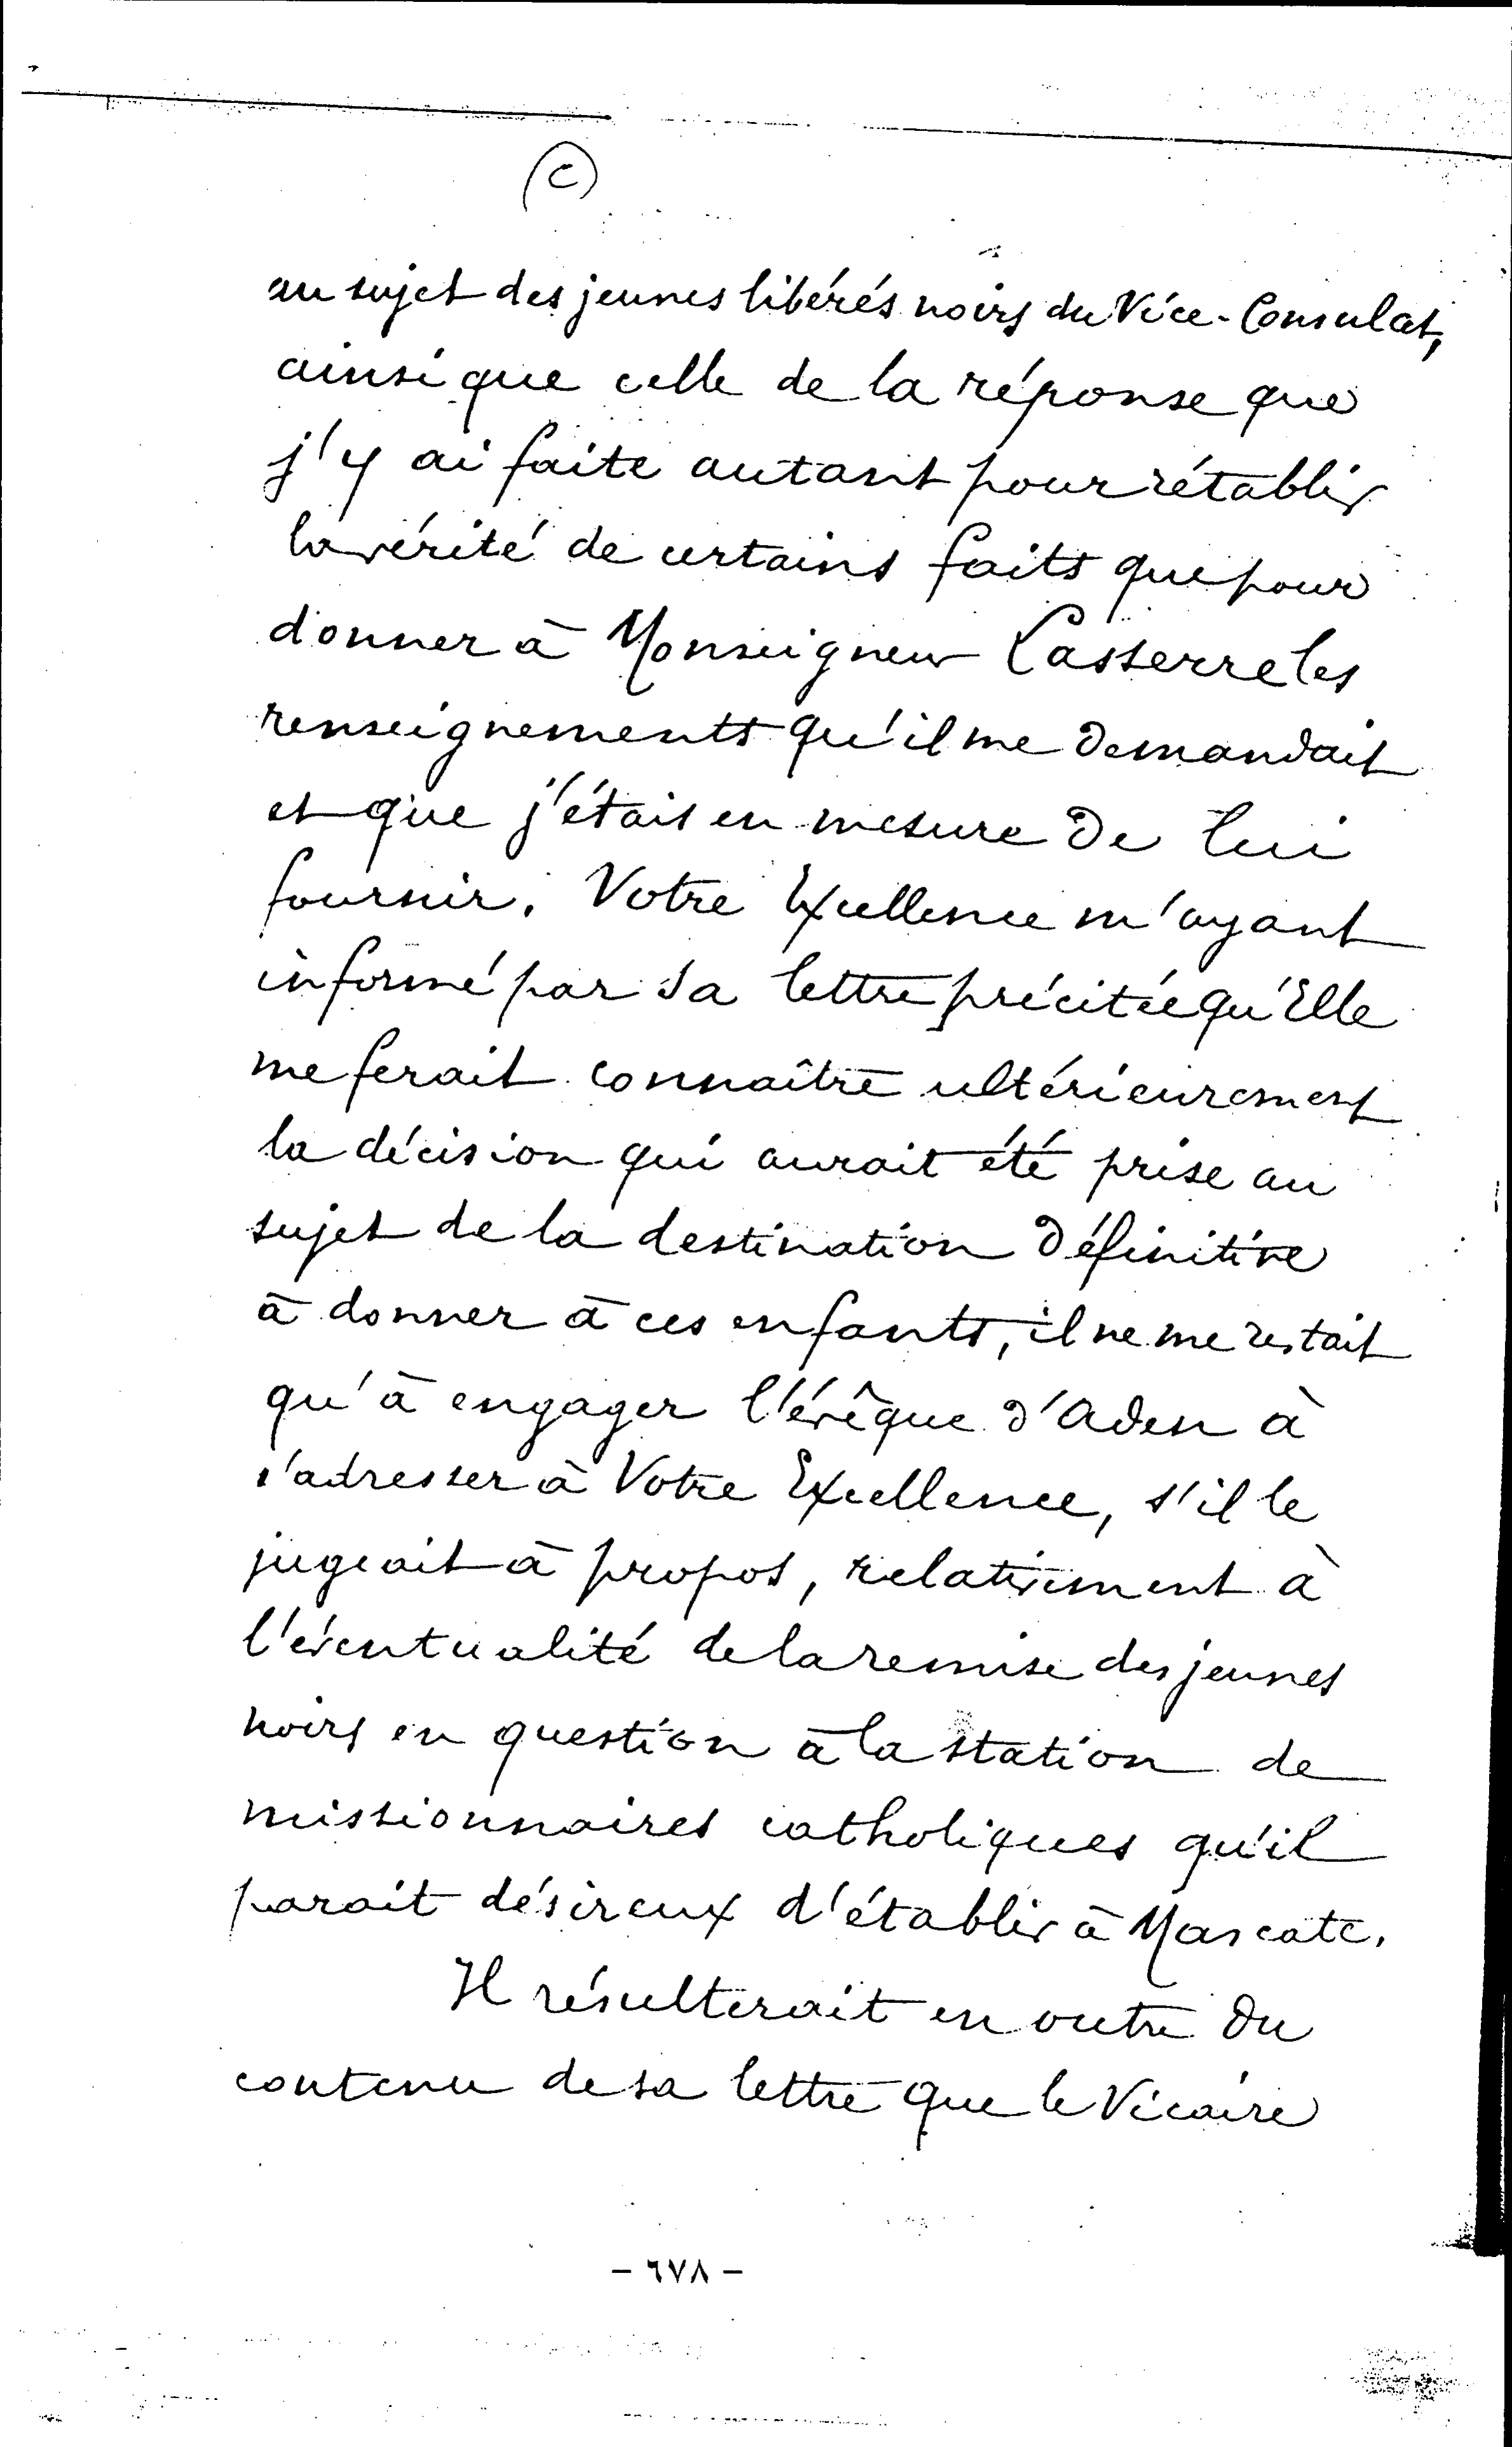 (C)
au sujet des jeunes libérés noirs du Vice-Consulat,
ainsi que celle de la réponse que
j'y ai faite autant pour rétablir
la vérité de certains faits que pour
donner à Monseigneur Lasserre les
renseignements qu'il me demandait
et que j'étais en mesure de lui
fournir. Votre Excellence m'ayant
informé par sa lettre précitée qu'Elle
me ferait connaître ultérieurement
la décision qui aurait été prise au
sujet de la destination définitive
à donner à ces enfants, il ne me restait
qu'à engager l'évêque d'Aden à
s'adresser à Votre Excellence, s'il le
jugeait à propos, relativement à
l'éventualité de la remise des jeunes
noirs en question à la station de
missionnaires catholiques qu'il
parait désireux d'établir à Mascate.
Il résulterait en outre du
contenu de sa lettre que le Vicaire
- ٦٧٨ -